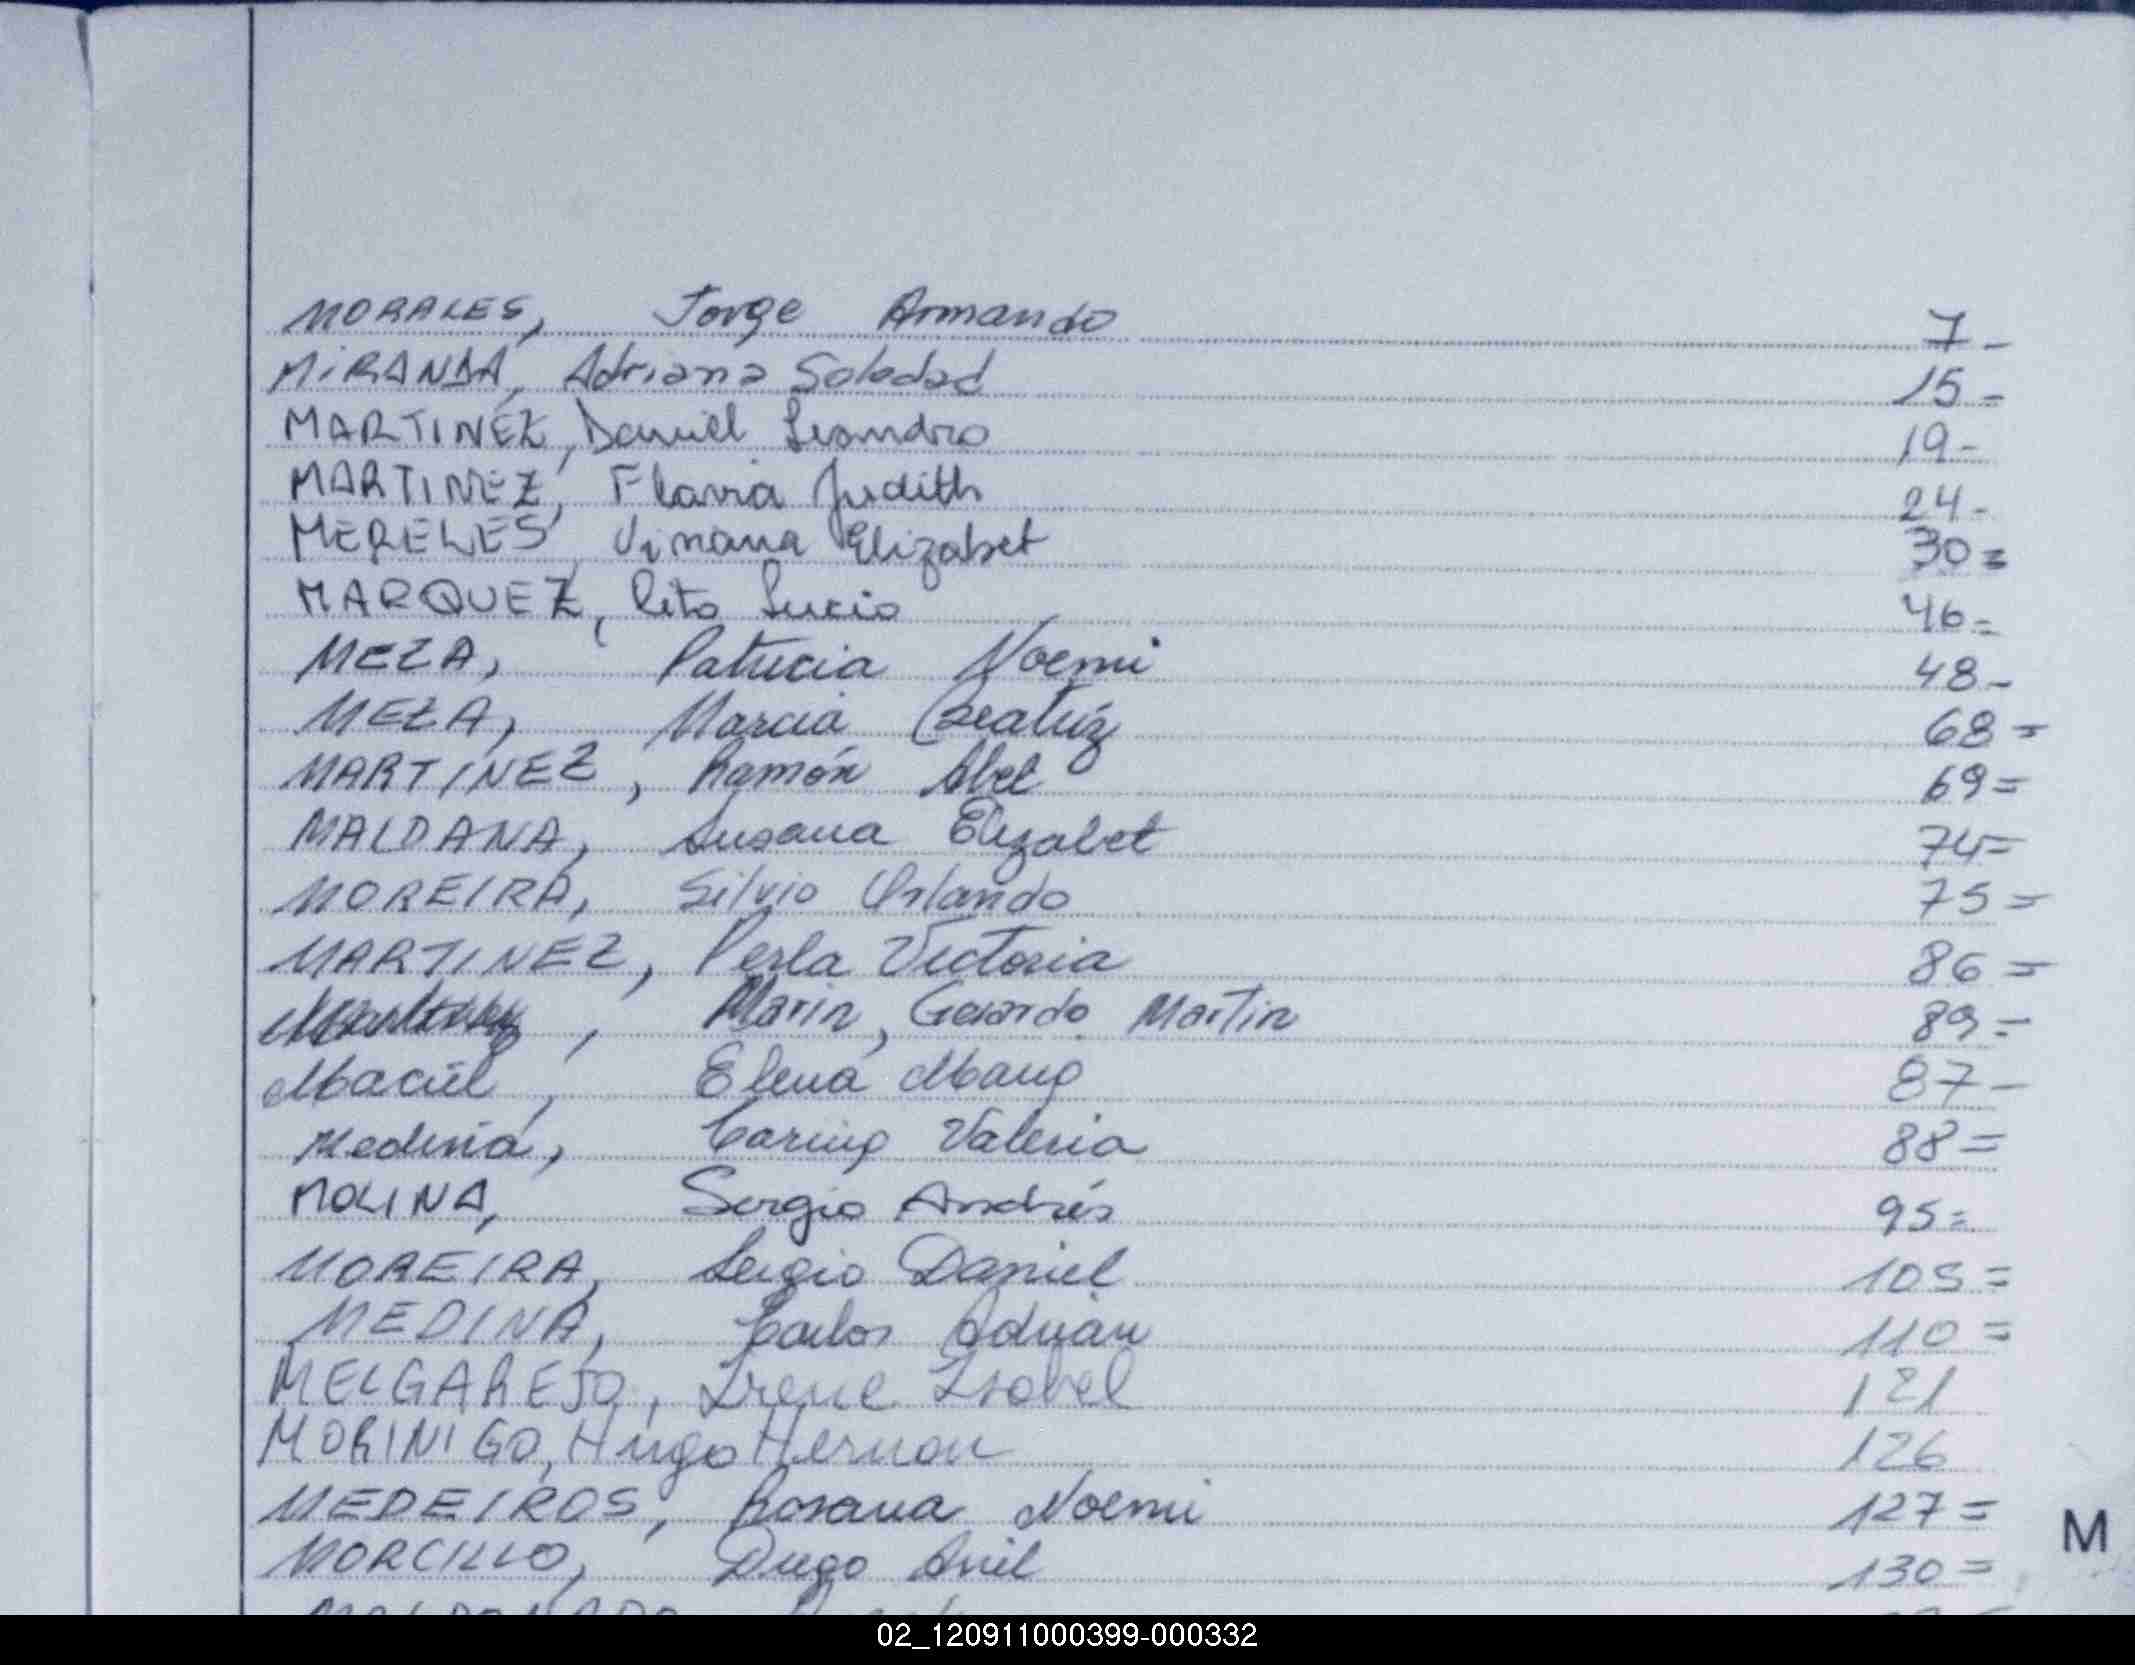 MORALES, Jorge Armando 7-
MIRANDA, Adriana Soledad 15=
MARTINEZ, Daniel Leandro 19-
MARTINEZ, Flavia Judith 24-
MERELES, Viviana Elizabet 30=
MARQUEZ, Rita Lucia 46=
MEZA, Patricia Noemi 48-
MEZA, Marcia Beatriz 68=
MARTINEZ, Ramón Abel 69=
MALDANA, Susana Elizabet 74=
MOREIRA, Silvio Orlando 75=
MARTINEZ, Perla Victoria 86=
, Marin, Gerardo Martin 89=
Maciel, Elena 87-
Medina, Carina Valeria 88=
MOLINA, Sergio Andrés 95=
MOREIRA, Sergio Daniel 105=
MEDINA, Carlos Adrián 110=
MELGAREJO, Irene Isabel 121
MORINIGO, Hugo Hernan 126
MEDEIROS, Rosana Noemi 127=
MORCILLO, Diego Ariel 130=
M
02_120911000399-000332